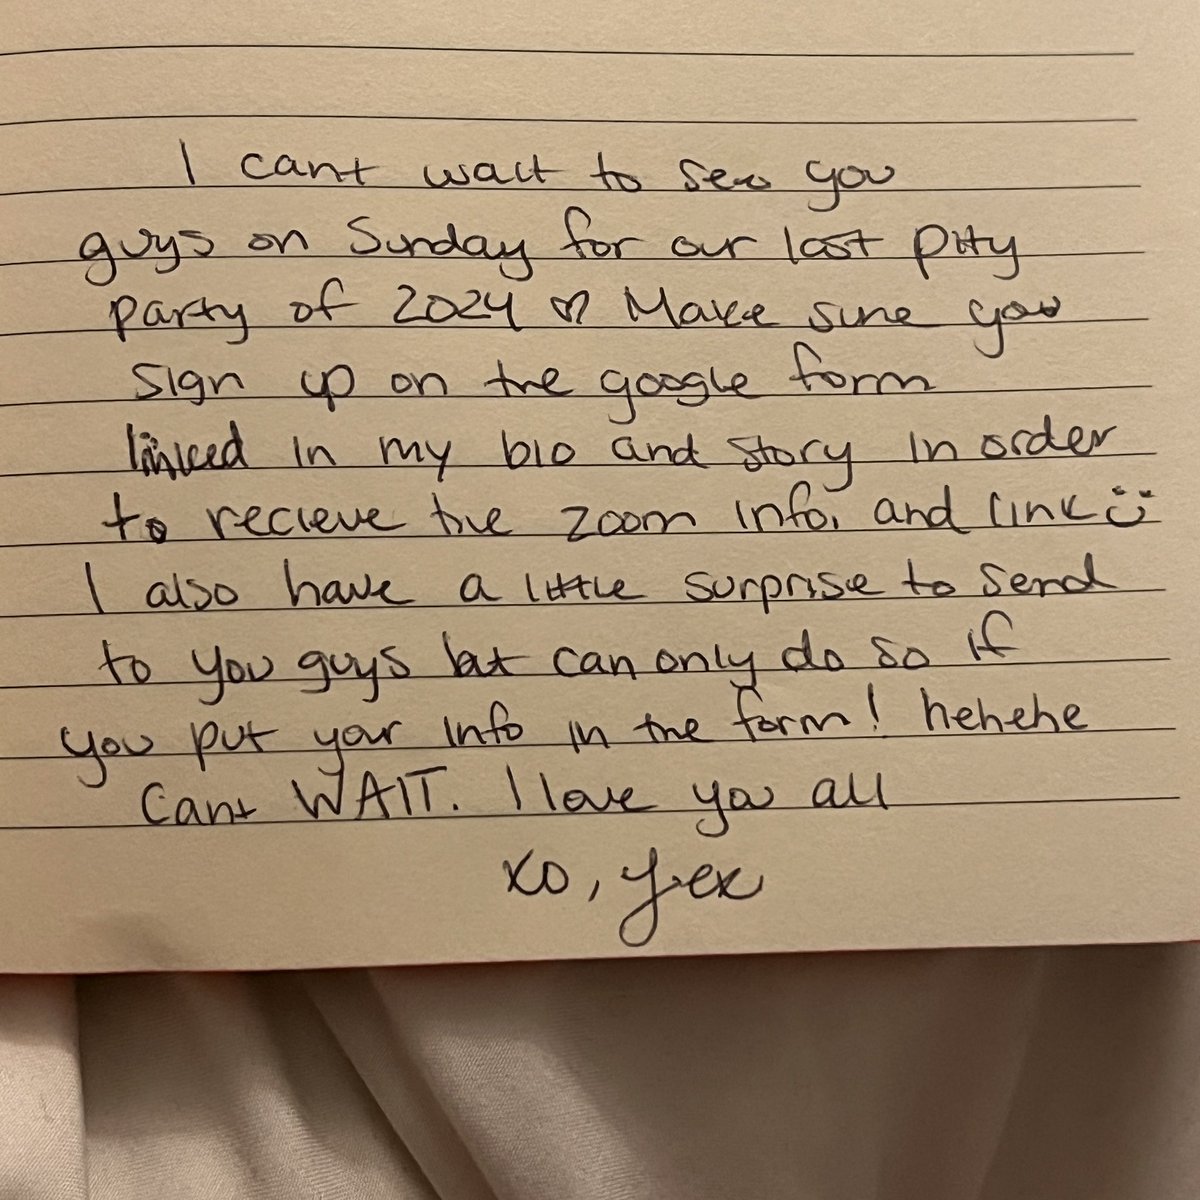 I cant wait to see you
guys on Sunday for our last pity
party of 2024 ♡ Make sure you
sign up on the google form
linked in my bio and story in order
to recieve the zoom info, and link :)
I also have a little surprise to send
to you guys but can only do so if
you put your info in the form! hehehe
Cant WAIT. I love you all
xo, yex